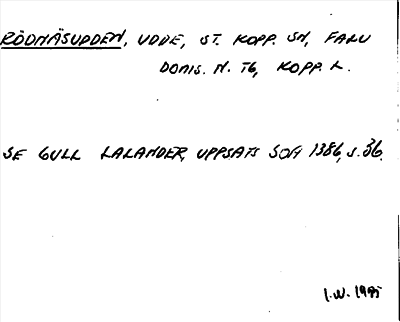 RÖDNÄSUDDEN, UDDE, ST. KOPP. SN, FALU
DOMS. N. TG, KOPP. L.
SE GULL LALANDER, UPPSATS SOA 1386, S. 36.
I.W. 1985